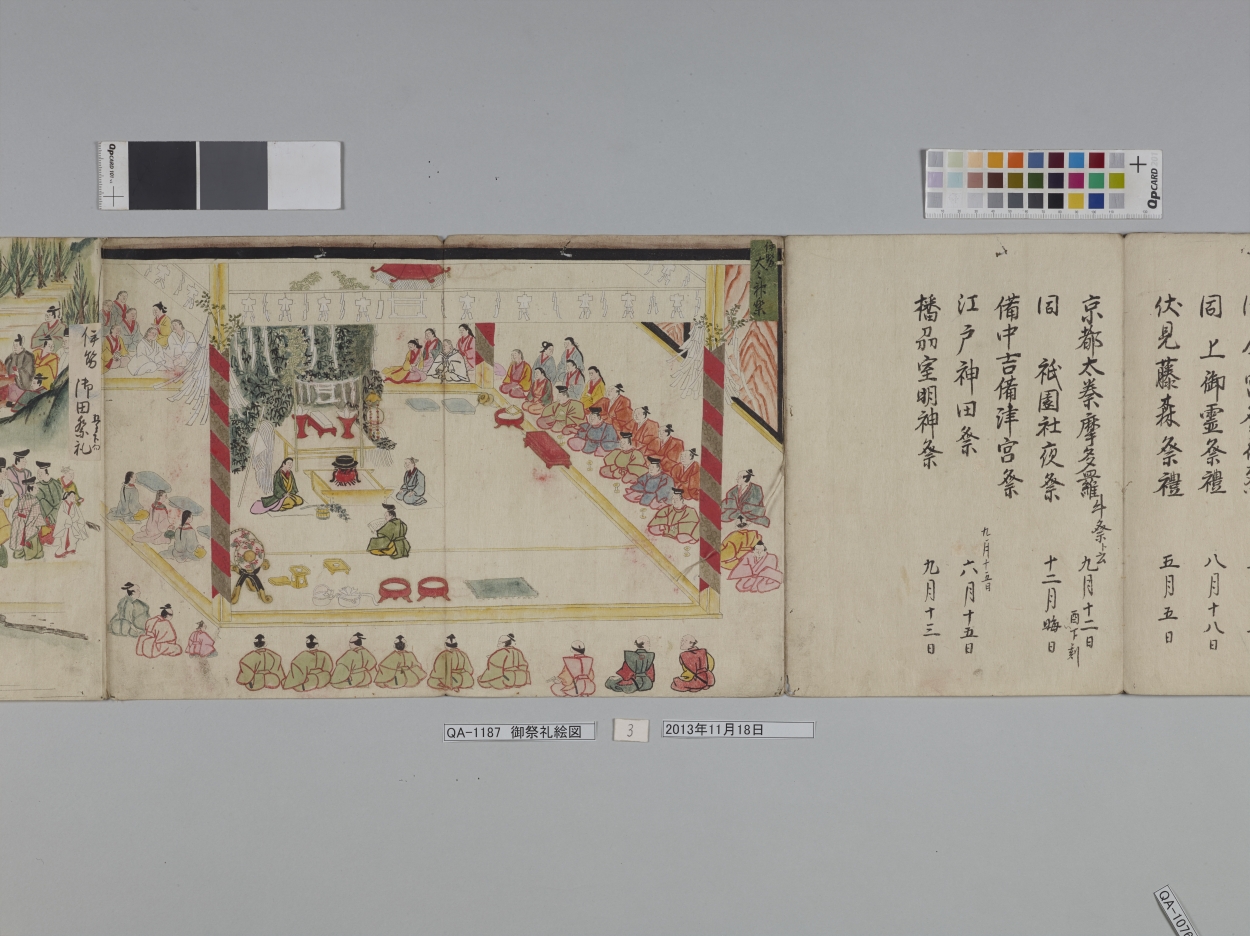 同上御霊祭禮 八月十八日
伏見藤森祭禮 五月五日
京都太秦摩多羅 牛祭ト云 九月十二日 酉下刻
同 祇園社夜祭 十二月晦日
備中吉備津宮祭
江戸神田祭 六月十五日 九月十五日
播刕室明神祭 九月十三日
伊勢 御田祭礼
QA-1187 御祭礼絵図
3
2013年11月18日
QA-1076
QPCARD 101
QPCARD 201